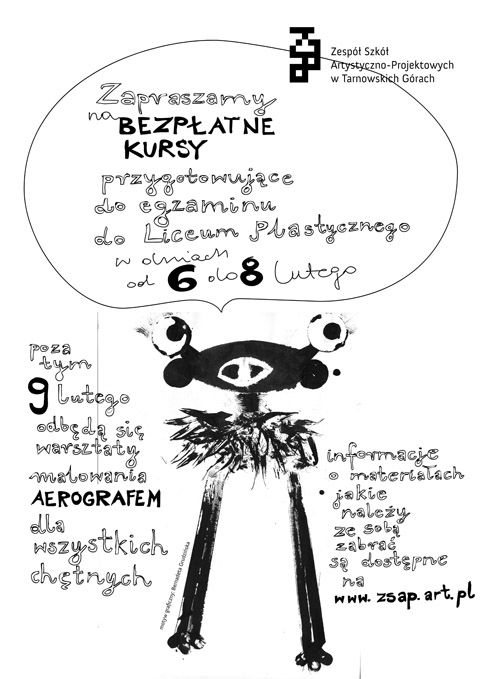 Zespół Szkół
Artystyczno-Projektowych
w Tarnowskich Górach
Zapraszamy
na BEZPŁATNE
KURSY
przygotowujące
do egzaminu
do Liceum Plastycznego
w dniach
od 6 do 8 lutego
poza
tym
9 lutego
odbędą się
warsztaty
malowania
AEROGRAFEM
dla
wszystkich
chętnych
informacje
o materiałach
jakie
należy
ze sobą
zabrać
są dostępne
na
www.zsap.art.pl
motyw graficzny: Bernadeta